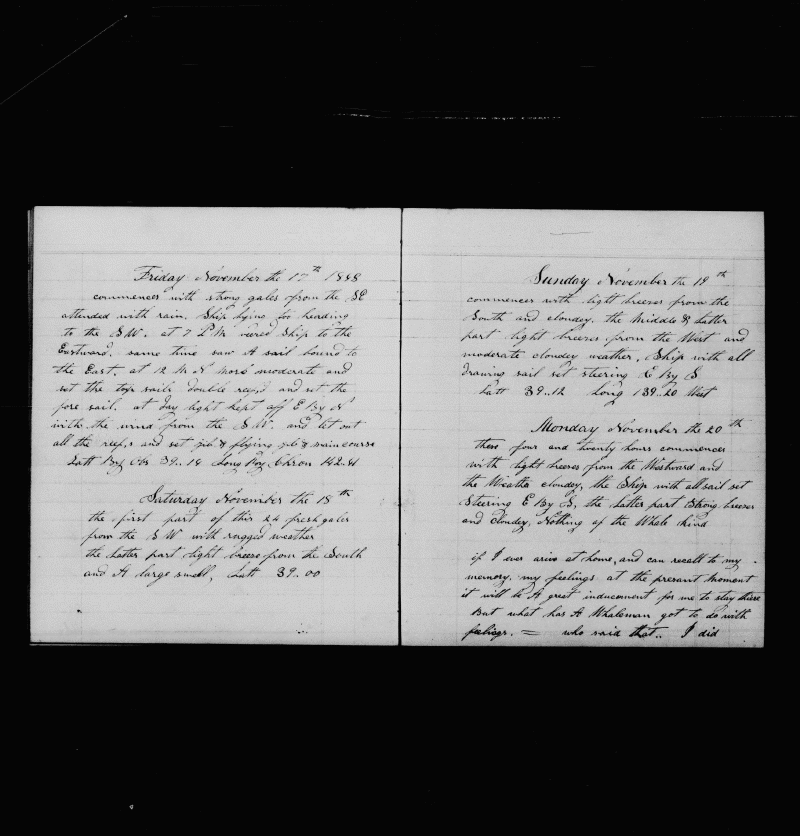 Friday November the 17th 1848
commences with strong gales from the SE
attended with rain. Ship lying too heading
to the SW. at 7 P M weared Ship to the
Eastward. same time saw A sail bound to
the East. at 12 M N more moderate and
set the top sails double reep,d and set the
fore sail. at day light kept off E By N
with the wind from the SW. and let out
all the reep,s and set gib & flying gib & main course
Latt By Obs 39..18 Long By Chron 142.41
Saturday November the 18th
the first part of this 24 fresh gales
from the SW with rugged weather
the Latter part light breese from the South
and A large swell, Latt 39..00
Sunday November the 19th
commences with light breeses from the
South and cloudey. the Middle & Latter
part light breeses from the West and
moderate cloudey weather, Ship with all
drawing sail set steering E By S
Latt 39..12 Long 139..20 West
Monday November the 20th
thees four and twenty hours commences
with light breeses from the Westward and
the Weather cloudey, the Ship with all sail set
Steering E By S, the Latter part Strong breeses
and cloudey, Nothing of the Whale kind
if I ever arive at home, and can recall to my
memory. my feelings at the presant moment
it will be A great inducement for me to stay there
But what has A Whaleman got to do with
feelings. = who said that.. I did